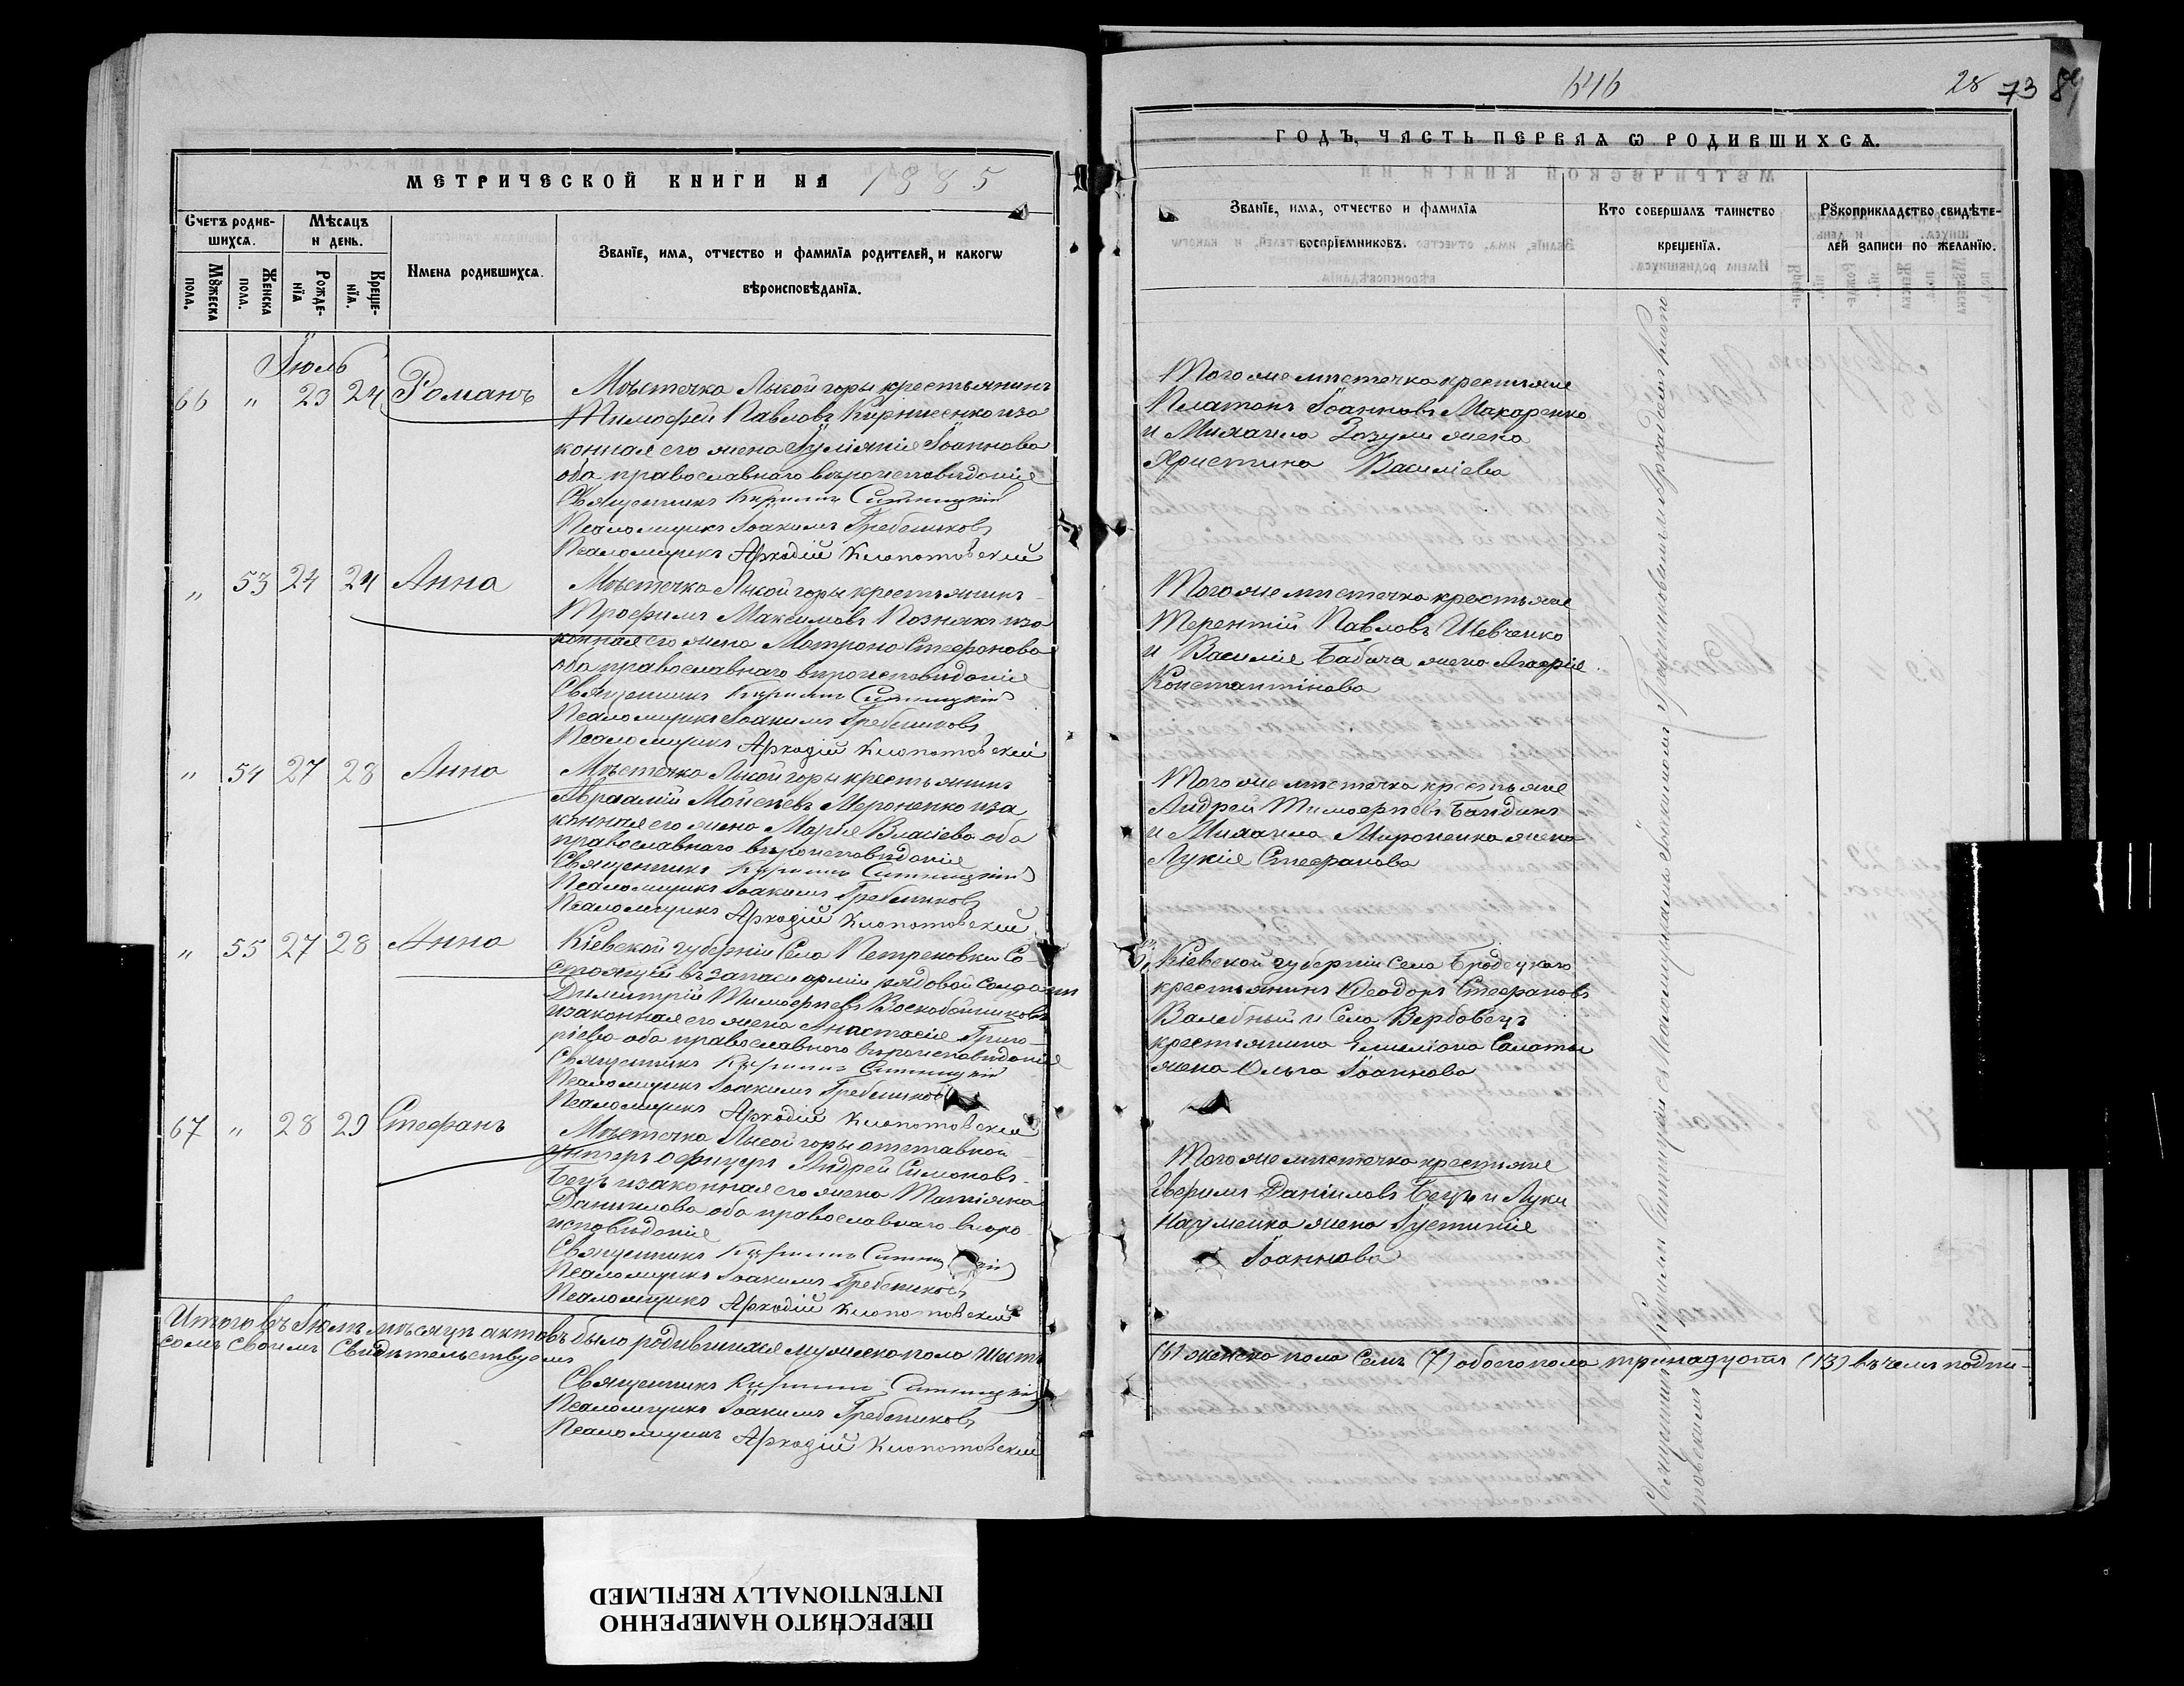 МЕТРИЧЕСКОЙ КНИГИ НА 1885
Счетъ родив-
шихся.
Мѣсяцъ
и день.
Имена родившихся.
Званїе, имя, отчество и фамилїя родителей, и какогѡ
вѣроисповѣданїя.
Мꙋжеска
пола.
Женска
пола.
Рожде-
нїя
Креще-
нїя.
Іюль
66 " 23 24 Романъ
Мѣстечка Лысой горы крестьянинъ
Тимофей Павловъ иза
конная его жена Іуліянія Іоаннова
оба православнаго вѣроисповѣданія
Священникъ Кириллъ Ситницкій
Псаломщикъ Іоакимъ Гребениковъ
Псаломщикъ Аркадій Клопотовскій
" 53 24 24 Анна
Мѣстечка Лысой горы крестьянинъ
Трофимъ Максимовъ Познякъ иза
конная его жена Матрона Стефанова
оба православнаго вѣроисповѣданія
Священникъ Кириллъ Ситницкій
Псаломщикъ Іоакимъ Гребениковъ
Псаломщикъ Аркадій Клопотовскій
" 54 27 28 Анна
Мѣстечка Лысой горы крестьянинъ
Авраамій Мойсеевъ Мероненко иза
конная его жена Марія Власіева оба
православнаго вѣроисповѣданія
Священникъ Кириллъ Ситницкій
Псаломщикъ Іоакимъ Гребениковъ
Псаломщикъ Аркадій Клопотовскій
" 55 27 28 Анна
Кіевской губерніи Села Петрековки Со-
стоящей въ запаси арміи рядовой солдатъ
Димитрій Тимофеевъ Воскобойниковъ
изаконная его жена Анастасія Григо-
ріева оба православнаго вѣроисповѣданія
Священникъ Кириллъ Ситницкій
Псаломщикъ Іоакимъ Гребениковъ
Псаломщикъ Аркадій Клопотовскій
67 " 28 29 Стефанъ
Мѣстечка Лысой горы отставной
унтеръ офицеръ Андрей Симоновъ
Бецъ изаконная его жена Татіяна
Даниилова оба православнаго вѣро
исповѣданія
Священникъ Кириллъ Ситницкій
Псаломщикъ Іоакимъ Гребениковъ
Псаломщикъ Аркадій Клопотовскій
Итого въ Іюлѣ мѣсяцѣ актовъ было родившихся мужеска пола шесть
сомъ своимъ Свидѣтельствуемъ
Священникъ Кириллъ Ситницкій
Псаломщикъ Іоакимъ Гребениковъ
Псаломщикъ Аркадій Клопотовскій
646 28 73
ГОДЪ, ЧАСТЬ ПЕРВАЯ Ѡ РОДИВШИХСЯ.
Званїе, имя, отчество и фамилїя
воспрїемниковъ.
Кто совершалъ таинство
крещенїя.
Рꙋкоприкладство свидѣте-
лей записи по желанїю.
Того же мѣстечка крестьяне
Платонъ Іоанновъ Макаренко
и Михаила Зозули жена
Христина Василіева
Того же мѣстечка крестьяне
Терентій Павловъ Шевченко
и Василія Бабича жена Агафія
Константінова
Того же мѣстечка крестьяне
Андрей Тимофеевъ Бандикъ
и Михаила Мироненка жена
Лукія Стефанова
Кіевской губерніи села Бродецкого
крестьянинъ Феодоръ Стефановъ
Валебный и Села Вербовецъ
крестьянина Емиліона Саломы
жена Ольга Іоаннова
Того же мѣстечка крестьяне
Ефимъ Даніиловъ Бецъ и Луки
Науменка жена Іустинія
Іоаннова
Священникъ Кириллъ Ситницкій съ Псаломщикамъ Іоакимомъ Гребениковымъ и Аркадіемъ Клопо
товскимъ
(6) женска пола Семъ (7) обоего пола тринадцать (13) въ чемъ подпи-
ПЕРЕСНЯТО НАМЕРЕННО
INTENTIONALLY REFILMED